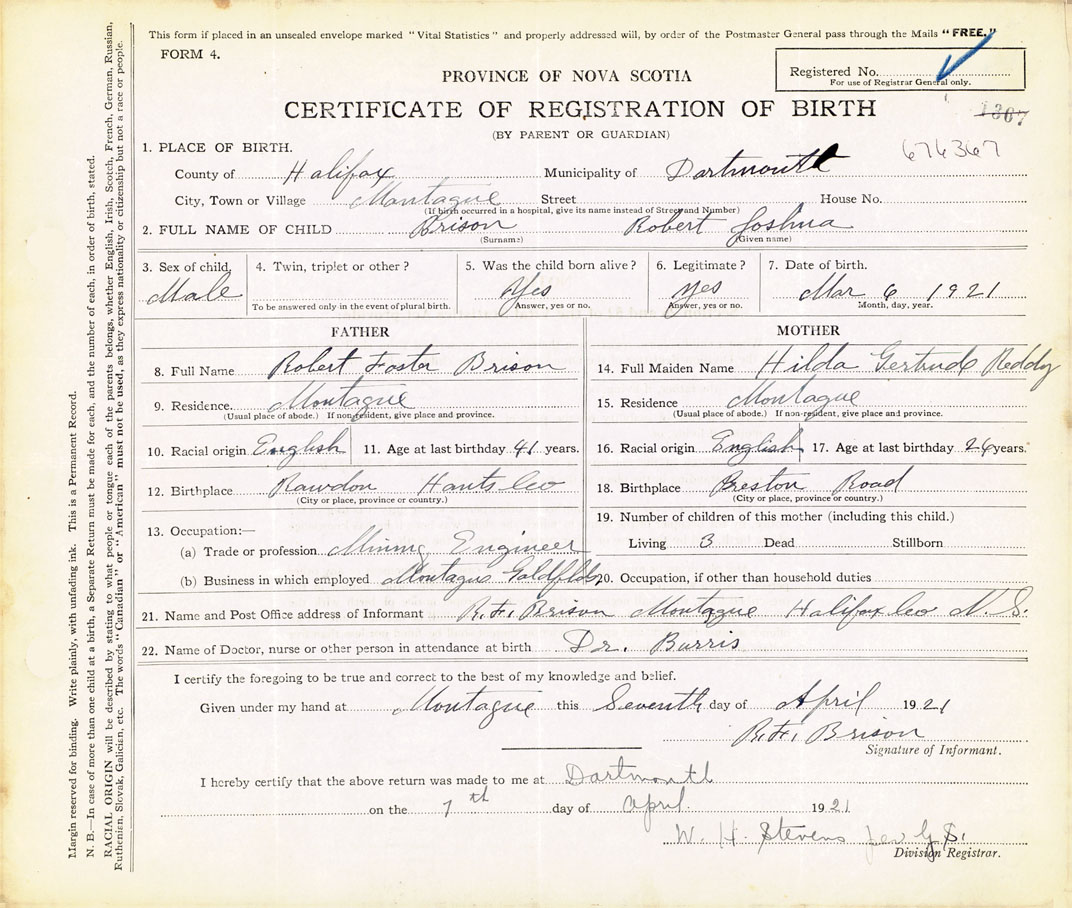 This form if placed in an unsealed envelope marked "Vital Statistics" and properly addressed will, by order of the Postmaster General pass through the Mails "FREE."
FORM 4.
PROVINCE OF NOVA SCOTIA
Registered No.
For use of Registrar General only.
CERTIFICATE OF REGISTRATION OF BIRTH
1367
(BY PARENT OR GUARDIAN)
676367
1. PLACE OF BIRTH.
County of Halifax Municipality of Dartmouth
City, Town or Village Montague Street House No.
(If birth occurred in a hospital, give its name instead of Street and Number)
2. FULL NAME OF CHILD Brison Robert Joshua
(Surname) (Given name)
3. Sex of child. 4. Twin, triplet or other? 5. Was the child born alive? 6. Legitimate? 7. Date of birth.
Male Yes Yes Mar 6 1921
To be answered only in the event of plural birth. Answer, yes or no. Answer, yes or no. Month, day, year.
FATHER
8. Full Name Robert Foster Brison
9. Residence. Montague
(Usual place of abode.) If non-resident, give place and province.
10. Racial origin English 11. Age at last birthday 41 years.
12. Birthplace Rawdon Hants Co
(City or place, province or country.)
13. Occupation:—
(a) Trade or profession Mining Engineer
(b) Business in which employed Montague Goldfields
MOTHER
14. Full Maiden Name Hilda Gertrude Reddy
15. Residence Montague
(Usual place of abode.) If non-resident, give place and province.
16. Racial origin English 17. Age at last birthday 26 years.
18. Birthplace Preston Road
(City or place, province or country.)
19. Number of children of this mother (including this child.)
Living 3 Dead Stillborn
20. Occupation, if other than household duties
21. Name and Post Office address of Informant R. F. Brison Montague Halifax Co N.S.
22. Name of Doctor, nurse or other person in attendance at birth Dr. Burris
I certify the foregoing to be true and correct to the best of my knowledge and belief.
Given under my hand at Montague this Seventh day of April 1921
R. F. Brison
Signature of Informant.
I hereby certify that the above return was made to me at Dartmouth
on the 7th day of April. 1921
W. H. Stevens
Division Registrar.
Margin reserved for binding. Write plainly, with unfading ink. This is a Permanent Record.
N. B.—In case of more than one child at a birth, a Separate Return must be made for each, and the number of each, in order of birth, stated.
RACIAL ORIGIN will be described by stating to what people or tongue each of the parents belongs, whether English, Irish, Scotch, French, German, Russian,
Ruthenian, Slovak, Galician, etc. The words "Canadian" or "American" must not be used, as they express nationality or citizenship but not a race or people.